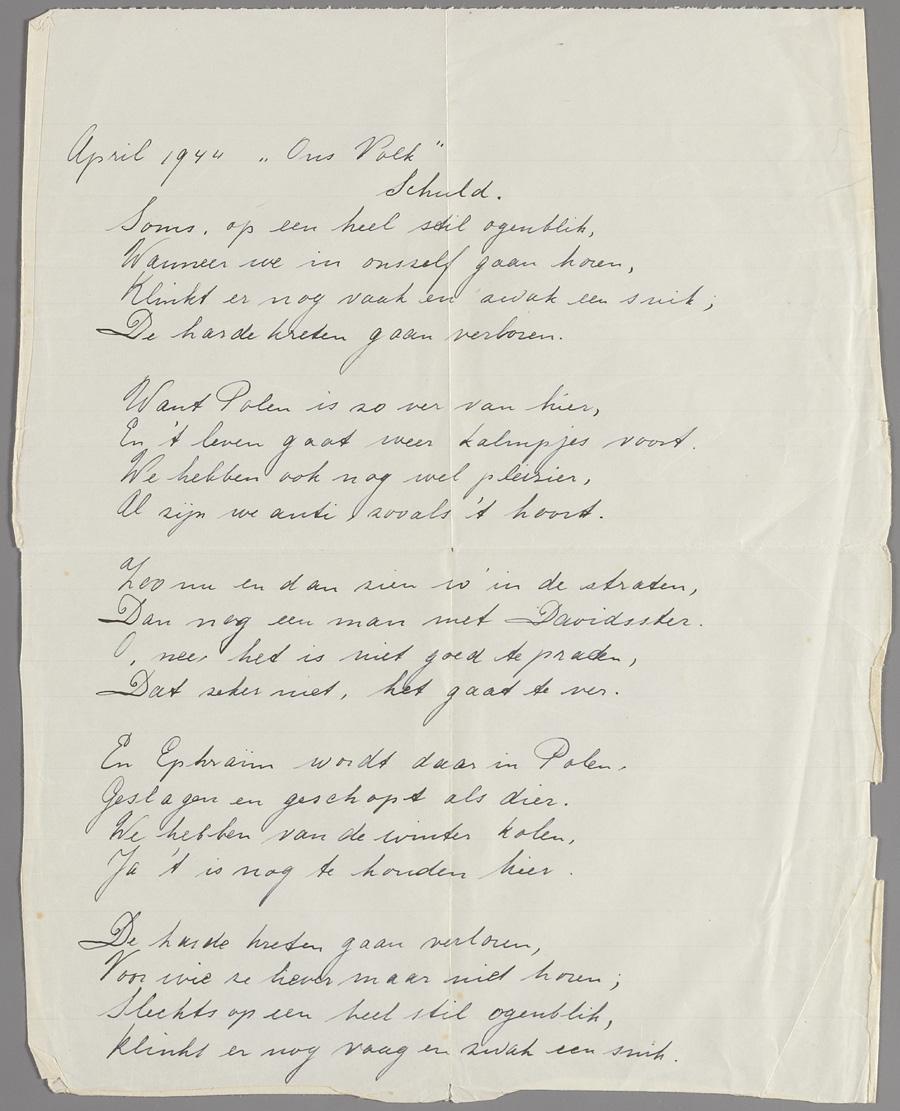 April 1944 „Ons Volk"
Schuld.
Soms, op een heel stil ogenblik,
Wanneer we in onszelf gaan horen,
Klinkt er nog vaak en zwak een snik;
De harde kreten gaan verloren.
Want Polen is zo ver van hier,
En 't leven gaat weer kalmpjes voort.
We hebben ook nog wel pleizier,
Al zijn we anti, zoals 't hoort.
Zoo nu en dan zien w' in de straten,
Dan nog een man met Davidsster.
O, nee, het is niet goed te praten,
Dat zeker niet, het gaat te ver.
En Ephraïm wordt daar in Polen,
Geslagen en geschopt als dier.
We hebben van de winter kolen,
Ja 't is nog te houden hier.
De harde kreten gaan verloren,
Voor wie ze liever maar niet horen;
Slechts op een heel stil ogenblik,
Klinkt er nog vaag en zwak een snik.